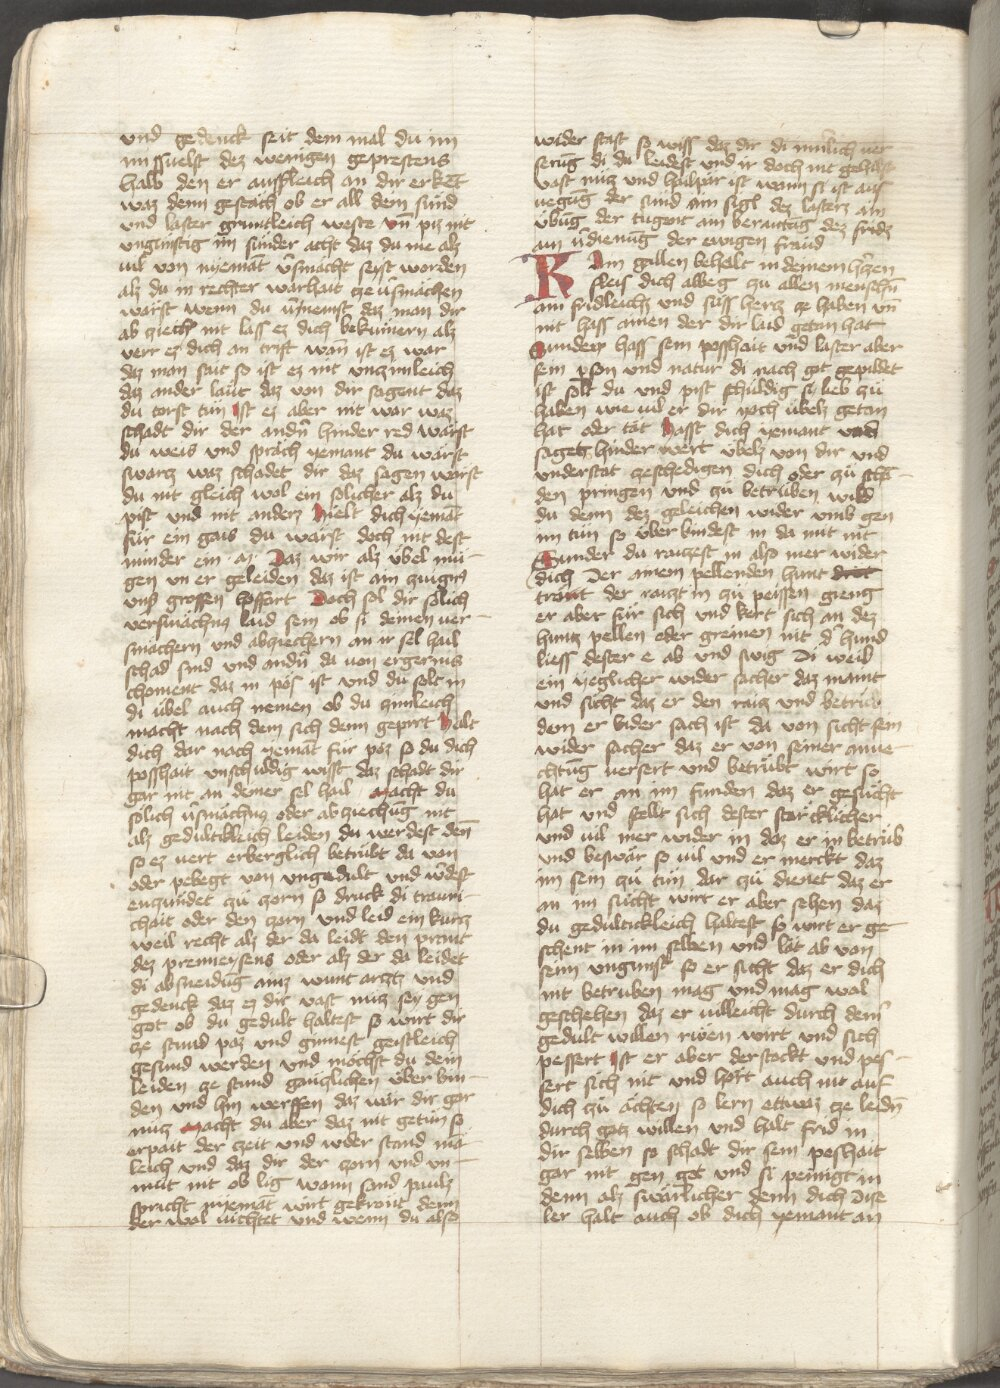 vnd gedenck seit dem mal du im
im ffuelst dez wenigen geprestens
halb den er aufleich an dir erkēt
waz denn geschäch ob er all dein sund
und laster gruntleich weste vn̄ piz nit
vngunstig im sunder acht daz du nie alz
uil von nyemāt v̄smächt seyst worden
alz du in rechter warhait ze v̄smächen
wärst wenn du v̄nemst daz man dir
ab ziech nit lass ez dich bekumern alz
verr ez dich an trift wān ist ez war
daz man sait so ist ez nit vnzimleich
daz ander läut daz von dir sagent daz
du torst tun Ist ez aber nit war waz
schadt dir der andn̄ hinder red wärst
du weis vnd spräch yemant du wärst
swarcz waz schadet dir daz sagen wärst
du nit gleich wol ein solicher alz du
pist und nit anderz hielt dich yemāt
für ein gais du wärst doch nit dest
minder ein Daz wir alz übel mü-
gen vn er geleiden daz ist ain zeugnuz
vnser grossen hoffart Doch sol dir solich
versmächnuz laid sein ob si deinen ver-
smächern und abziechern an ir sel hail
schad sind und andn̄ da von ergernuz
choment daz in pös ist vnd du solt in
di übel auch nemen ob du zimleich
macht nach dem sich denn gepurt halt
dich dar nach yemāt für pöz so du dich
posshait vnschuldig wisst daz schadt dir
gar nit an deiner sel hail macht du
sölich v̄smächnuz oder abziechūg nit
alz gedultikleich leiden du werdest den̄
so ez uert erberglich betrübt da von
oder pebegt von vngedult und w̄dest
enzundet zu zorn so druck di trauri-
chait oder den zorn und leid ein kurcz
weil recht alz der da leidt den prant
dez prenneysens oder alz der da leidet
di absneidūg ainz wunt arztz und
gedenck daz ez dir vast nucz sey gen
got ob du gedult haltest so wirt dir
ze stund paz und ginnest geistleich
gesund werden und möchst du dem
leiden ze stund gänczlichen über win-
den und hin werffen daz wär dir gar
nucz macht du aber daz nit getun so
erpait der zeit und wider stand mā-
leich und daz dir der zorn und vn-
mut nit ob lig wann sand pauls
spricht nyemāt wirt gekrönt denn
der wol vichtet und wenn du also
wider stast so wiss daz dir di innrlich ver
serūg di du leidest und ir doch nit gehilst
vast nucz und hailpär ist wann si ist auf
uegūg der sund ain sigl dez lasterz ain
übūg der tugent ain beraitūg dez fridz
ain v̄dienūg der ewigen fräud
Kain gallen behalt in deinem h̄czen
fleis dich albeg zu allen menschn̄
ain fridleichz und süss hercz ze haben vn̄
nit hass ainen der dir laid getan hat
Sunder hass sein posshait und laster aber
sein p̄son und natur di nach got gepildet
ist solt du und pist schuldig si lieb zü
haben wie uil er dir noch übelz getan
hat oder tät hasst dich yemant
saget hinder wert übelz von dir und
understat ze schedigen dich oder zu schā-
den pringen und zü betrüben wild
du denn dez geleichen wider umb gen
im tün so über bindest in da mit nit
Sunder du raiczest in also mer wider
dich Der ainem pellenden hunt
trönt der raizt in zü peissen gieng
er aber für sich und kert sich an dez
huntz pellen oder greinen nit d̄ hund
liess dester e ab und swig Di weil
ein yeglicher wider sacher daz maint
und sicht daz er den raicz und betrüb
dem er wider sach ist da von sicht sein
wider sacher daz er von seiner anue-
chtūg versert und betrübt wirt so
hat er an im funden daz er gesücht
hat und stellt sich dester stärcklicher
und uil mer wider in daz er in betrüb
und beswär so uil und er merckt daz
im sein zü tün dar zü dienet daz er
an im sücht wirt er aber sehen daz
du gedultickleich haltest so wirt er ge
schent in im selben und lät ab von
seiner vngunst so er sicht daz er dich
nit betrüben mag und mag wol
geschehen daz er villeicht durch dein̄
gedult willen riuen wirt und sich
pessert Ist er aber der stockt und pes-
sert sich nit und hört auch nit auf
dich zü ächten so lern ettwaz ze leidn̄
durch gotz willen und halt frid in
dir selben so schadt dir sein poshait
gar nit gen got und si peinigt in
denn alz swärlicher denn dich Dise
ler halt auch ob dich yemant an